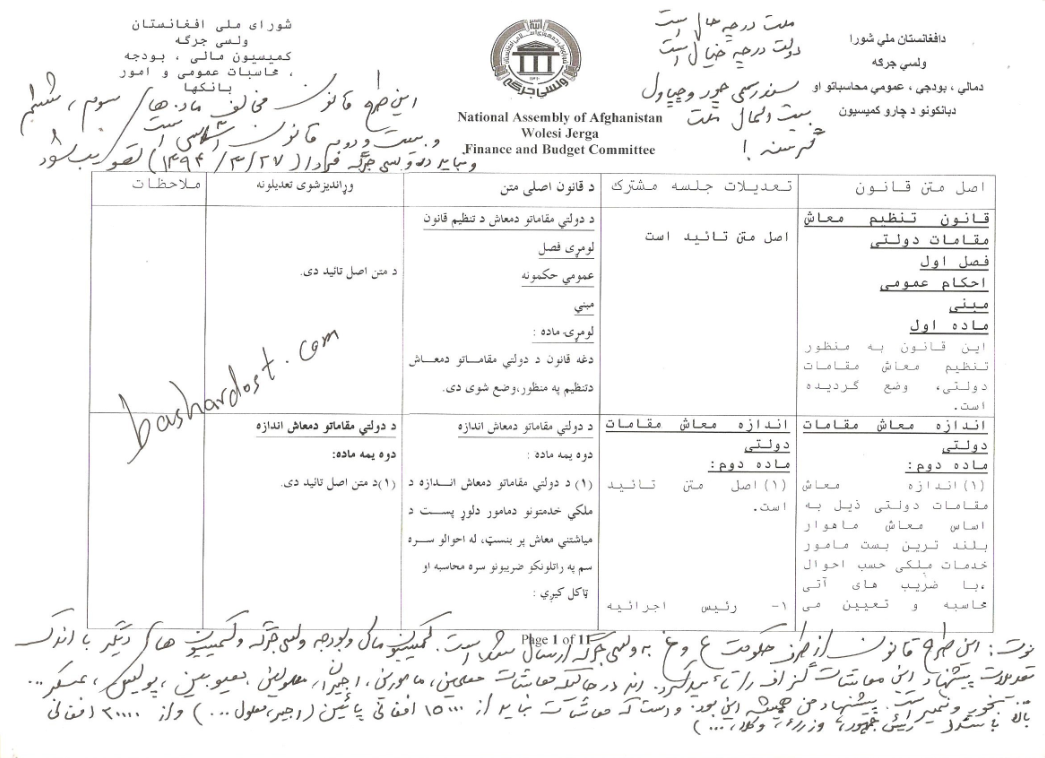 شورای ملی افغانستان
ولسی جرگه
کمیسیون مالی ، بودجه
، محاسبات عمومی و امور
بانکها
ملت در چه حال است
دولت در چه خیال است
سند رسمی چور و چپاول
بیت المال ملت
گرسنه !
دافغانستان ملي شورا
ولسي جرگه
دمالي ، بودجې ، عمومي محاسباتو او
دبانکونو د چارو کمیسیون
National Assembly of Afghanistan
Wolesi Jerga
Finance and Budget Committee
این طرح قانون مخالف ماده های سوم ، ششم
و بیست و دوم قانون اساسی است
و نباید در ولسی جرگه فردا (۱۳۹۴/۳/۲۷) تصویب شود
اصل متن قانون
تعدیلات جلسه مشترک
د قانون اصلی متن
وړاندیزشوی تعدیلونه
ملاحظات
قانون تنظیم معاش
مقامات دولتی
فصل اول
احکام عمومی
مبنی
ماده اول
این قانون به منظور
تنظیم معاش مقامات
دولتی، وضع گردیده
است.
اصل متن تائید است
د دولتي مقاماتو دمعاش د تنظیم قانون
لومړی فصل
عمومي حکمونه
مبني
لومړۍ ماده :
دغه قانون د دولتي مقاماتو دمعاش
دتنظیم په منظور،وضع شوی دی.
د متن اصل تائید دی.
bashardost.com
اندازه معاش مقامات
دولتی
ماده دوم:
(۱) اندازه معاش
مقامات دولتی ذیل به
اساس معاش ماهوار
بلند ترین بست مامور
خدمات ملکی حسب احوال
،با ضریب های آتی
محاسبه و تعیین می
اندازه معاش مقامات
دولتی
ماده دوم:
(۱) اصل متن تائید
است.
۱- رئیس اجرائیه
د دولتي مقاماتو دمعاش اندازه
دوه یمه ماده :
(۱) د دولتي مقاماتو دمعاش اندازه د
ملکي خدمتونو دمامور دلوړ پست د
میاشتني معاش پر بنسټ، له احوالو سره
سم په راتلونکو ضریبونو سره محاسبه او
ټاکل کیږي :
د دولتي مقاماتو دمعاش اندازه
دوه یمه ماده:
(۱)د متن اصل تائید دی.
Page 1 of 11
نوت : این طرح قانون از طرف حکومت ع و غ به ولسی جرگه ارسال شده است. کمیسیون مالی و بودجه ولسی جرگه و کمیسیون های دیگر با اندک
تعدیلات پیشنهاد این معاشات گزاف را تأیید کرد. این در حالیکه معاشات معلمین، مامورین، اجیران، معلولین، معیوبین ، پولیس ، عسکر ...
بخور و نمیر است. پیشنهاد من همیشه این بود و است که معاشات نباید از ۱۵۰۰۰ افغانی پائین (اجیر، معلول ...) و از ۲۰۰۰۰ افغانی
بالا باشد ( رئیس جمهور، وزراء، وکلا، ...)